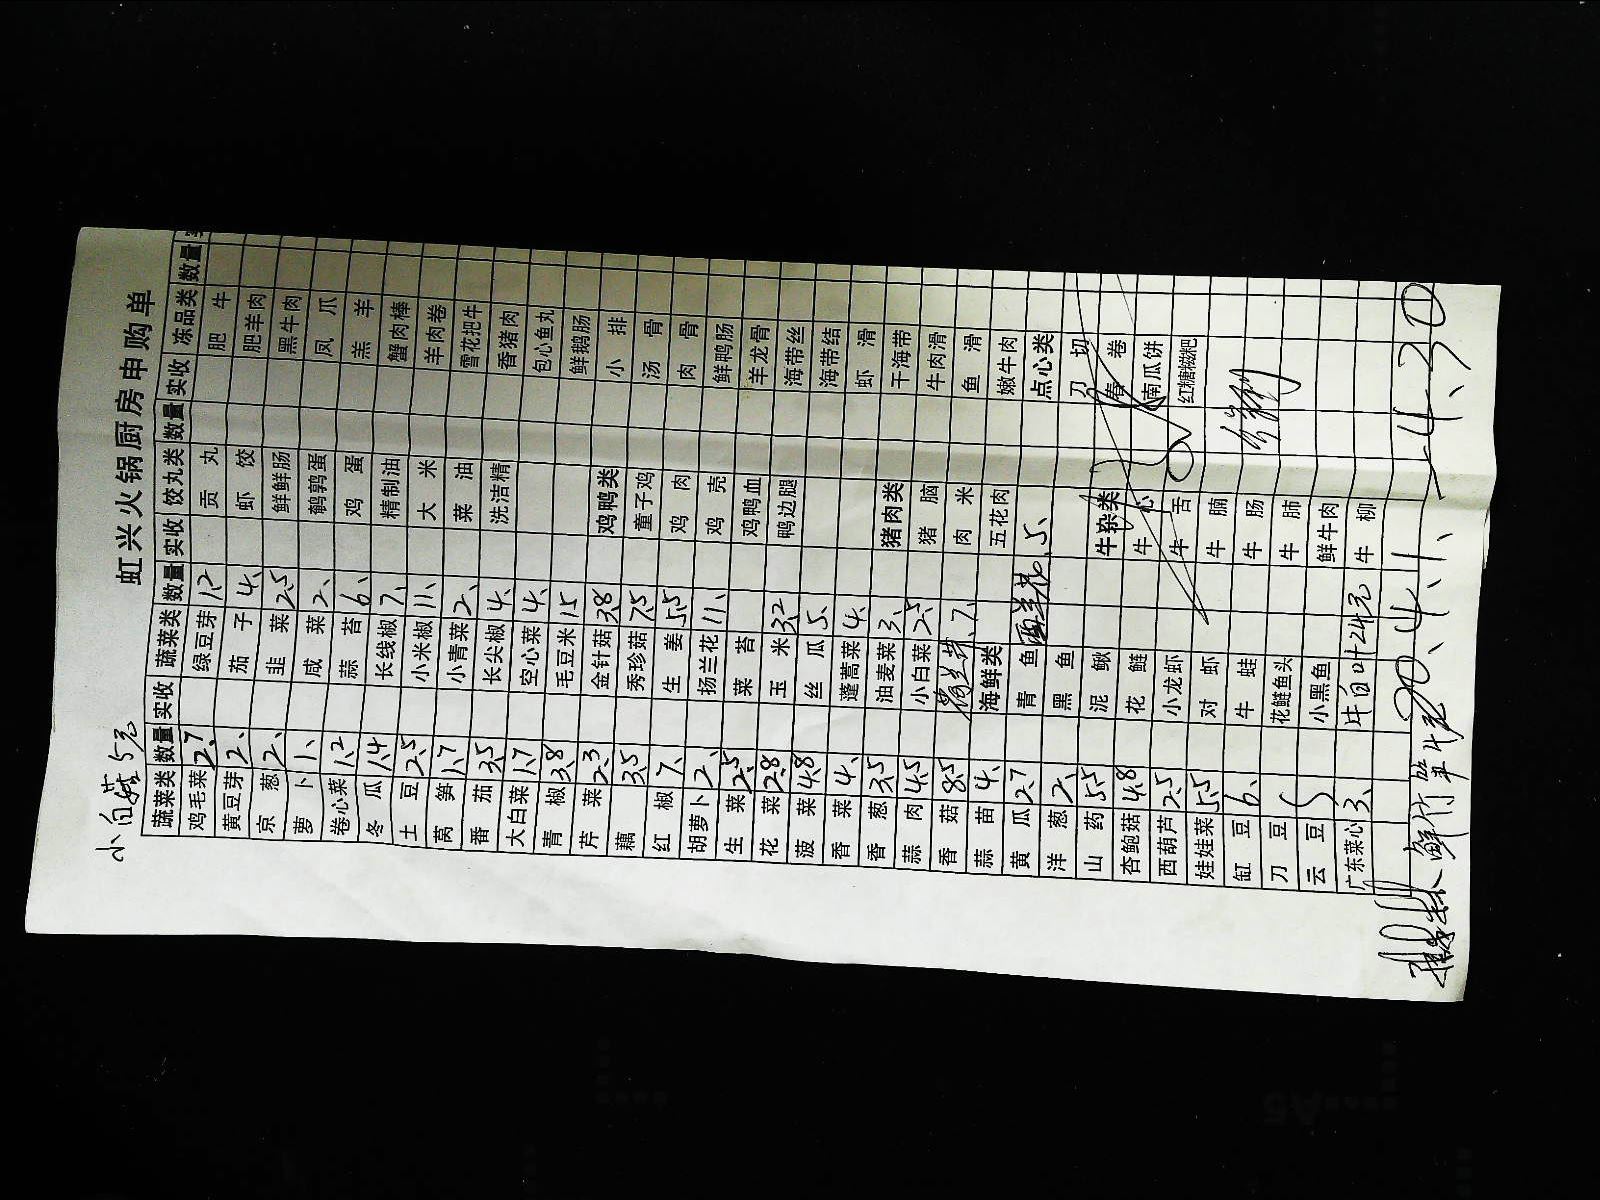 小白菇5元
虹兴火锅厨房申购单
蔬菜类 数量 实收 蔬菜类 数量 实收 饺丸类 数量 实收 冻品类 数量
鸡毛菜 2.7 绿豆芽 1.2 贡丸 肥牛
黄豆芽 2、 茄子 4、 虾饺 肥羊肉
京葱 2、 韭菜 2.5 鲜鲜肠 黑牛肉
萝卜 1、 咸菜 2、 鹌鹑蛋 凤爪
卷心菜 1.2 蒜苔 6、 鸡蛋 羔羊
冬瓜 1.4 长线椒 7、 精制油 蟹肉棒
土豆 2.5 小米椒 11、 大米 羊肉卷
莴笋 1.7 小青菜 2、 菜油 雪花把牛
番茄 3.5 长尖椒 4、 洗洁精 香猪肉
大白菜 1.7 空心菜 4、 包心鱼丸
青椒 3.8 毛豆米 15 鲜鹅肠
芹菜 2.3 金针菇 3.8 鸡鸭类 小排
藕 3.5 秀珍菇 7.5 童子鸡 汤骨
红椒 7、 生姜 5.5 鸡肉 肉骨
胡萝卜 2、 扬兰花 11、 鸡壳 鲜鸭肠
生菜 2.5 菜苔 鸡鸭血 羊龙骨
花菜 2.8 玉米 3.2 鸭边腿 海带丝
菠菜 4.8 丝瓜 5、 海带结
香菜 4、 蓬蒿菜 4、 虾滑
香葱 3.5 油麦菜 3、 猪肉类 干海带
蒜肉 4.5 小白菜 2.5 猪脑 牛肉滑
香菇 8.5 7、 肉米 鱼滑
蒜苗 4、 海鲜类 五花肉 嫩牛肉
黄瓜 2.7 青鱼 西兰花 5、 点心类
洋葱 2、 黑鱼 刀切
山药 5.5 泥鳅 牛杂类 春卷
杏鲍菇 4.8 花鲢 牛心 南瓜饼
西葫芦 2.5 小龙虾 牛舌 红糖糍粑
娃娃菜 5.5 对虾 牛腩
缸豆 6、 牛蛙 牛肠
刀豆 花鲢鱼头 牛肺
云豆 小黑鱼 鲜牛肉
广东菜心 3、 牛百叶24元 牛柳
鲜竹笋4元